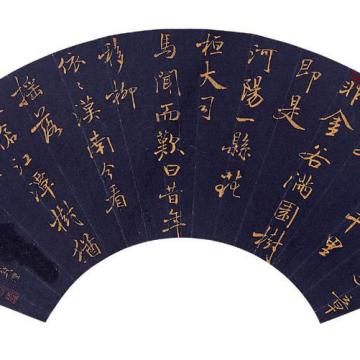 章
里
非金谷滿園樹
即是
河陽一縣花
桓大司
馬聞而歎曰昔年
移柳
依〻漢南今看
搖落
江潭樹猶